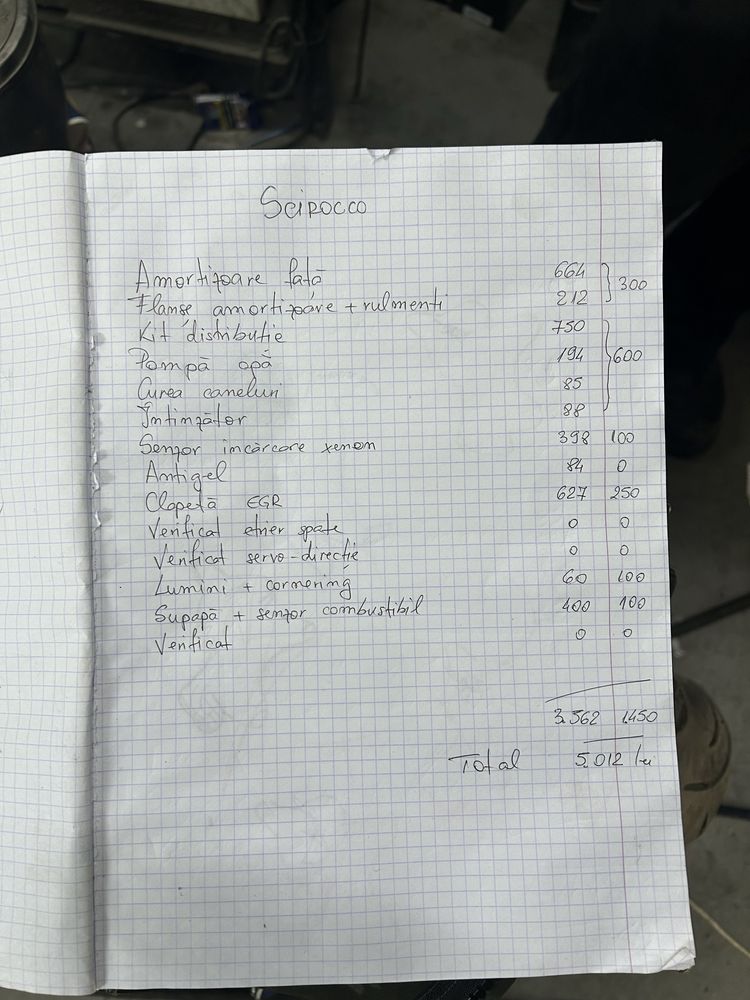 Scirocco
Amortizoare față 664
Flanșe amortizoare + rulmenti 212 } 300
Kit distributie 750
Pompă apă 194 } 600
Curea caneluri 85
Întinzător 88
Senzor incărcare xenon 398 100
Antigel 84 0
Clapetă EGR 627 250
Verificat etrier spate 0 0
Verificat servo-direcție 0 0
Lumini + cornering 60 100
Supapă + senzor combustibil 400 100
Verificat 0 0
3.562 1.450
Total 5.012 lei